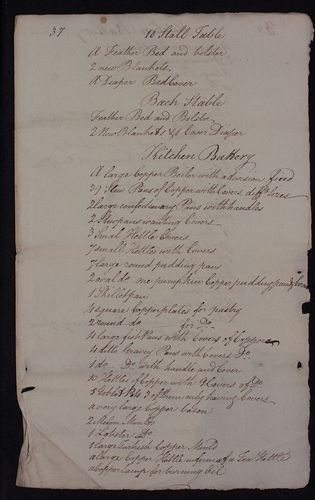 37
10 Stall Table
A Feather Bed and bolster
2 new Blankets
A Diaper Bed Cover
Bach Stable
Feather Bed and Bolster
2 New Blankets & 1 Cover Diaper
Kitchen Battery
A large Copper Boiler with a division fixed
39 Stew Pans of Copper with Covers diff sizes
2 large confectionary Pans with handles
2 Stewpans wanting Covers
3 Small Kettle Covers
7 small Kettles with Covers
7 large round pudding pans
2 oval do one pumpkin Copper pudding pan &
1 Skillet pan
4 square Copper plates for pastry
2 round do for Do
4 large fish Pans with Covers of Copper
4 ditto Gravey Pans with Covers Do
1 do Do with handle and Cover
10 Kettles of Copper with 9 Covers of Do
5 3 of them only having Covers
a very large Copper bason
2 Melon Moulds
1 Lobster Do
1 large Turkish Copper Mould
a large Copper Kettle in form of a Tea Kettle
a Copper Lamp for burning Oil